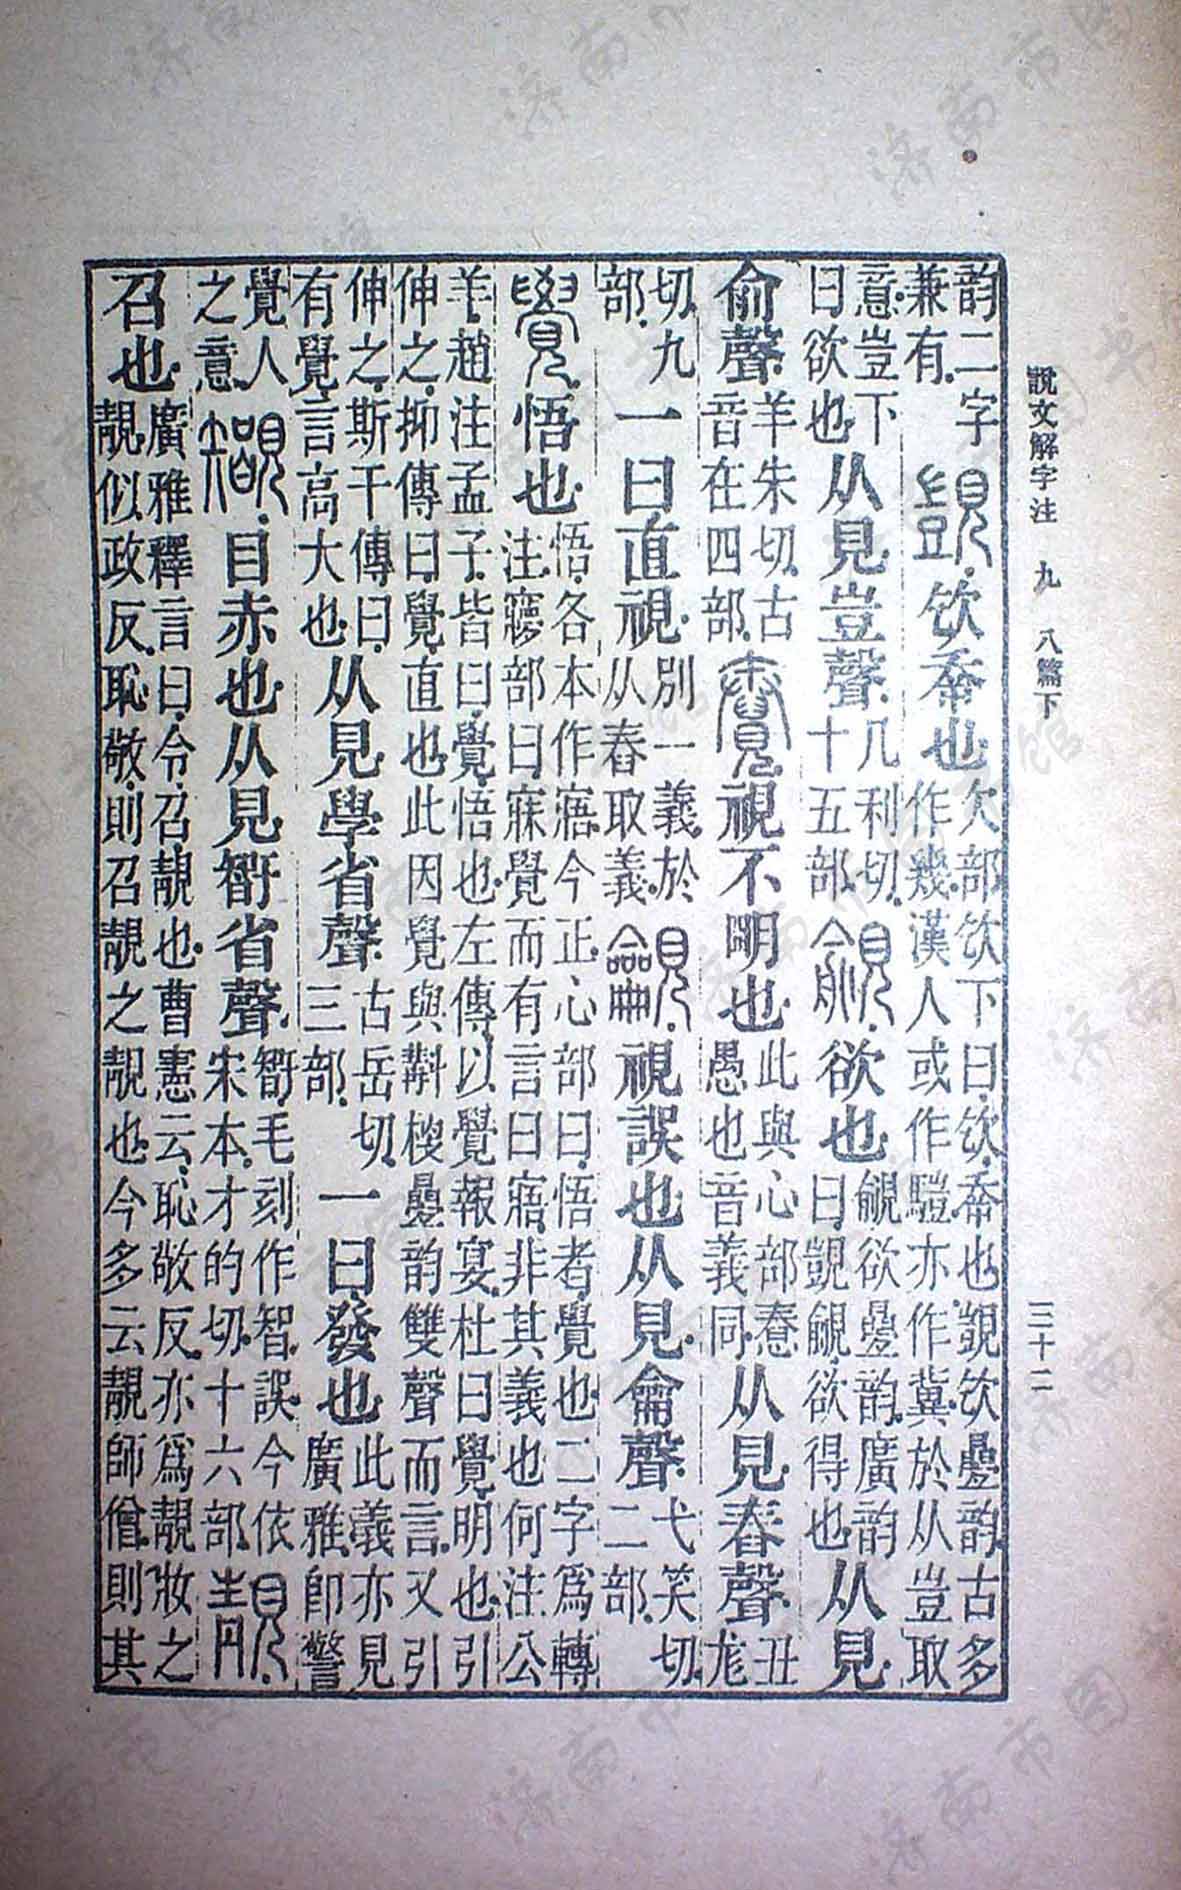 說文解字注　九　八篇下　三十二
韵二字
兼有
覬㰟𡴘也
欠部㰟下曰㰟𡴘也覬㰟疊韵古多
作幾漢人或作𩥉亦作冀於从豈取
意豈下
曰欲也
从見豈聲
几利切
十五部
覦欲也
覦欲疊韵廣韵
曰覬覦欲得也
从見
俞聲
羊朱切古
音在四部
視不明也
此與心部惷
愚也音義同
从見春聲
丑
尨
切九
部
一曰直視
別一義於
从春取義
視誤也从見龠聲
弋笑切
二部
覺悟也
悟各本作寤今正心部曰悟者覺也二字爲轉
注㝱部曰寐覺而有言曰寤非其義也何注公
羊趙注孟子皆曰覺悟也左傳以覺報宴杜曰覺明也引
伸之抑傳曰覺直也此因覺與斠梭疊韵雙聲而言又引
伸之斯干傳曰
有覺言高大也
从見學省聲
古岳切
三部
一曰發也
此義亦見
廣雅卽警
覺人
之意
目赤也从見𥏼省聲
𥏼毛刻作智誤今依
宋本才的切十六部
靚
召也
廣雅釋言曰令召靚也曹憲云恥敬反亦爲靚妝之
靚似政反恥敬則召靚之靚也今多云靚師僧則其